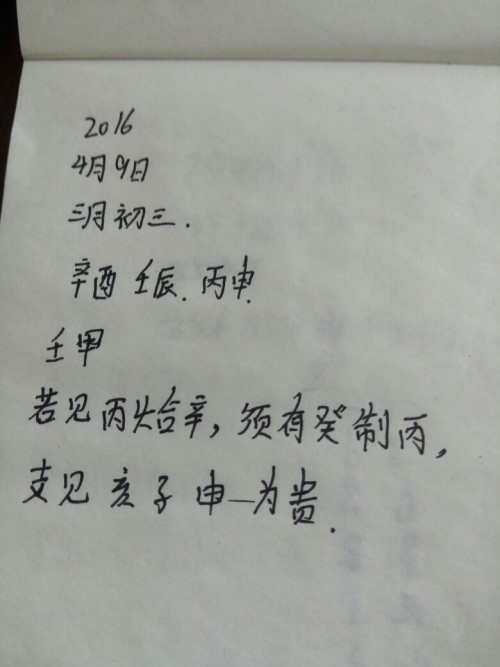 2016
4月9日
三月初三.
辛酉 壬辰. 丙申.
壬甲
若见丙火合辛，须有癸制丙，
支见亥子申—为贵.